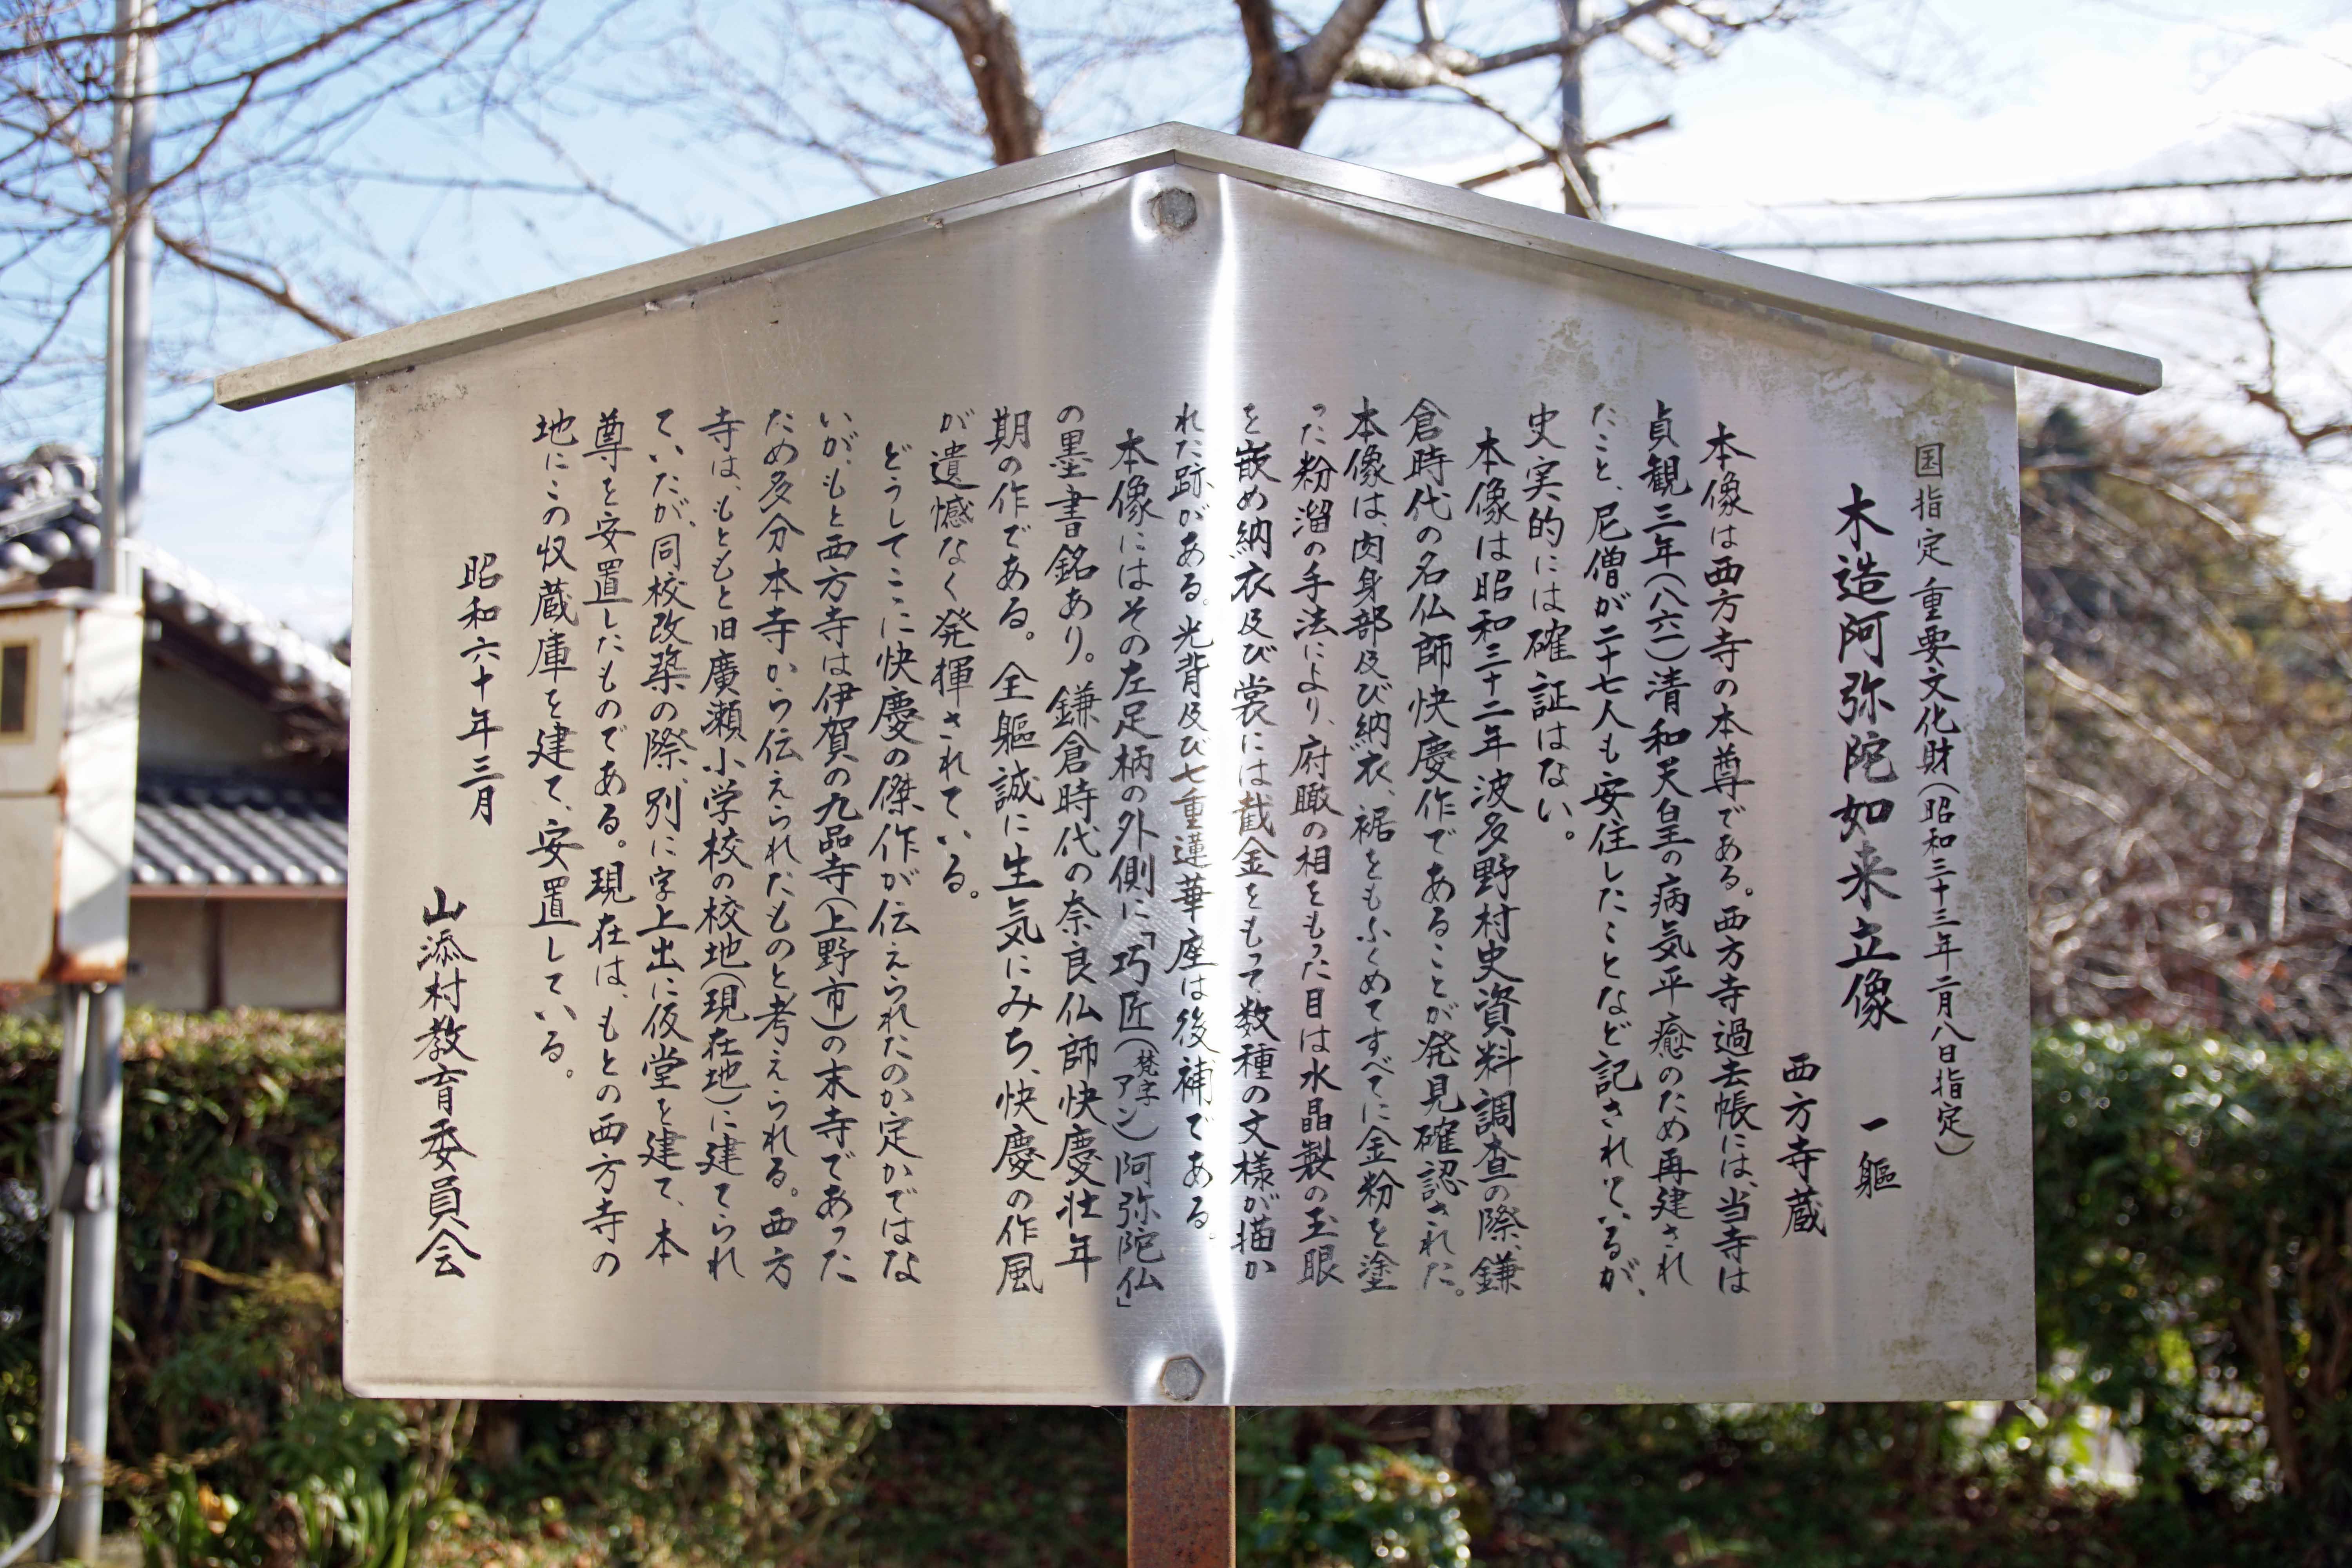 国指定重要文化財(昭和三十三年二月八日指定)
木造阿弥陀如来立像 一軀
西方寺蔵
本像は西方寺の本尊である。西方寺過去帳には、当寺は
貞観三年(八六一)清和天皇の病気平癒のため再建され
たこと、尼僧が二十七人も安住したことなど記されているが、
史実的には確証はない。
本像は昭和三十二年波多野村史資料調査の際、鎌
倉時代の名仏師快慶作であることが発見確認された。
本像は、肉身部及び納衣、裾をもふくめてすべてに金粉を塗
った粉溜の手法により、府瞰の相をもった目は水晶製の玉眼
を嵌め納衣及び裳には截金をもって数種の文様が描か
れた跡がある。光背及び七重蓮華座は後補である。
本像にはその左足柄の外側に「巧匠(梵字アン)阿弥陀仏」
の墨書銘あり。鎌倉時代の奈良仏師快慶壮年
期の作である。全軀誠に生気にみち、快慶の作風
が遺憾なく発揮されている。
どうしてここに快慶の傑作が伝えられたのか定かではな
いが、もと西方寺は伊賀の九品寺(上野市)の末寺であった
ため多分本寺から伝えられたものと考えられる。西方
寺は、もともと旧廣瀬小学校の校地(現在地)に建てられ
ていたが、同校改築の際、別に字上出に仮堂を建て、本
尊を安置したものである。現在は、もとの西方寺の
地にこの収蔵庫を建て、安置している。
昭和六十年三月
山添村教育委員会